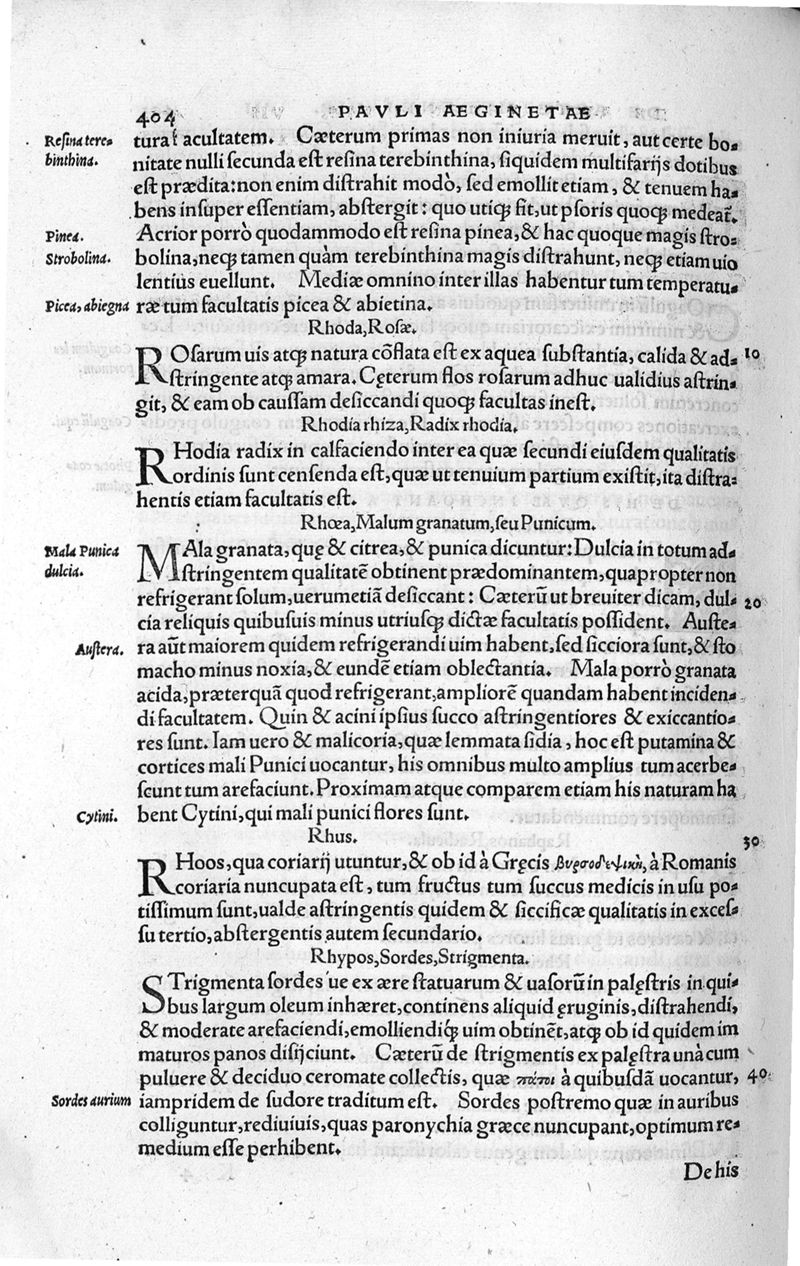 404
PAVLI AEGINETAE
Resina tere⸗
binthina.
tura facultatem. Cæterum primas non iniuria meruit, aut certe bo⸗
nitate nulli secunda est resina terebinthina, siquidem multifarijs dotibus
est prædita: non enim distrahit modò, sed emollit etiam, & tenuem ha⸗
bens insuper essentiam, abstergit: quo utiqꝫ fit, ut psoris quoqꝫ medeat᷑.
Pinea.
Acrior porrò quodammodo est resina pinea, & hac quoque magis stro⸗
Strobolina.
bolina, neqꝫ tamen quàm terebinthina magis distrahunt, neqꝫ etiam uio
lentius euellunt. Mediæ omnino inter illas habentur tum temperatu⸗
Picea, abiegna
ræ tum facultatis picea & abietina.
Rhoda, Rosæ.
ROsarum uis atqꝫ natura cōflata est ex aquea substantia, calida & ad⸗ 10
stringente atqꝫ amara. Cęterum flos rosarum adhuc ualidius astrin⸗
git, & eam ob caussam desiccandi quoqꝫ facultas inest.
Rhodia rhiza, Radix rhodia.
RHodia radix in calfaciendo inter ea quæ secundi eiusdem qualitatis
ordinis sunt censenda est, quæ ut tenuium partium existit, ita distra⸗
hentis etiam facultatis est.
Rhœa, Malum granatum, seu Punicum.
Mala Punica
dulcia.
MAla granata, quę & citrea, & punica dicuntur: Dulcia in totum ad⸗
stringentem qualitatē obtinent prædominantem, quapropter non
refrigerant solum, uerumetiā desiccant: Cæterū ut breuiter dicam, dul⸗ 20
cia reliquis quibusuis minus utriusqꝫ dictæ facultatis possident. Auste⸗
Austera.
ra aūt maiorem quidem refrigerandi uim habent, sed sicciora sunt, & sto
macho minus noxia, & eundē etiam oblectantia. Mala porrò granata
acida, præterquā quod refrigerant, ampliorē quandam habent inciden⸗
di facultatem. Quin & acini ipsius succo astringentiores & exiccantio⸗
res sunt. Iam uero & malicoria, quæ lemmata sidia, hoc est putamina &
cortices mali Punici uocantur, his omnibus multo amplius tum acerbe⸗
scunt tum arefaciunt. Proximam atque comparem etiam his naturam ha
Cytini.
bent Cytini, qui mali punici flores sunt.
Rhus.
30
RHoos, qua coriarij utuntur, & ob id à Gręcis βυρσοδεψικὴ, à Romanis
coriaria nuncupata est, tum fructus tum succus medicis in usu po⸗
tissimum sunt, ualde astringentis quidem & siccificæ qualitatis in exces⸗
su tertio, abstergentis autem secundario.
Rhypos, Sordes, Strigmenta.
STrigmenta sordes ue ex ære statuarum & uasorū in palęstris in qui⸗
bus largum oleum inhæret, continens aliquid ęruginis, distrahendi,
& moderate arefaciendi, emolliendiqꝫ uim obtinēt, atqꝫ ob id quidem im
maturos panos disijciunt. Cæterū de strigmentis ex palęstra unà cum
puluere & deciduo ceromate collectis, quæ πάτοι à quibusdā uocantur, 40
Sordes aurium
iampridem de sudore traditum est. Sordes postremo quæ in auribus
colliguntur, rediuiuis, quas paronychia græce nuncupant, optimum re⸗
medium esse perhibent.
De his